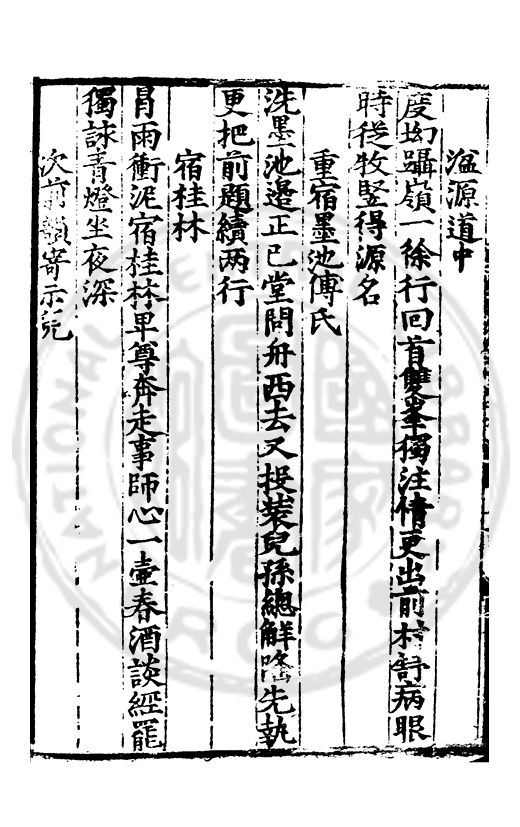 湓源道中
度坳躡嶺一徐行回首雙峯獨注情更出前村舒病眼
時從牧豎得源名
重宿墨池傅氏
洗墨池邉正已堂問舟西去又投裝兒孫總解 先執
更把前題續两行
宿桂林
冐雨衝泥宿桂林卑尊奔走事師心一壷春酒談經罷
獨詠青燈坐夜深
次前韻寄示兒